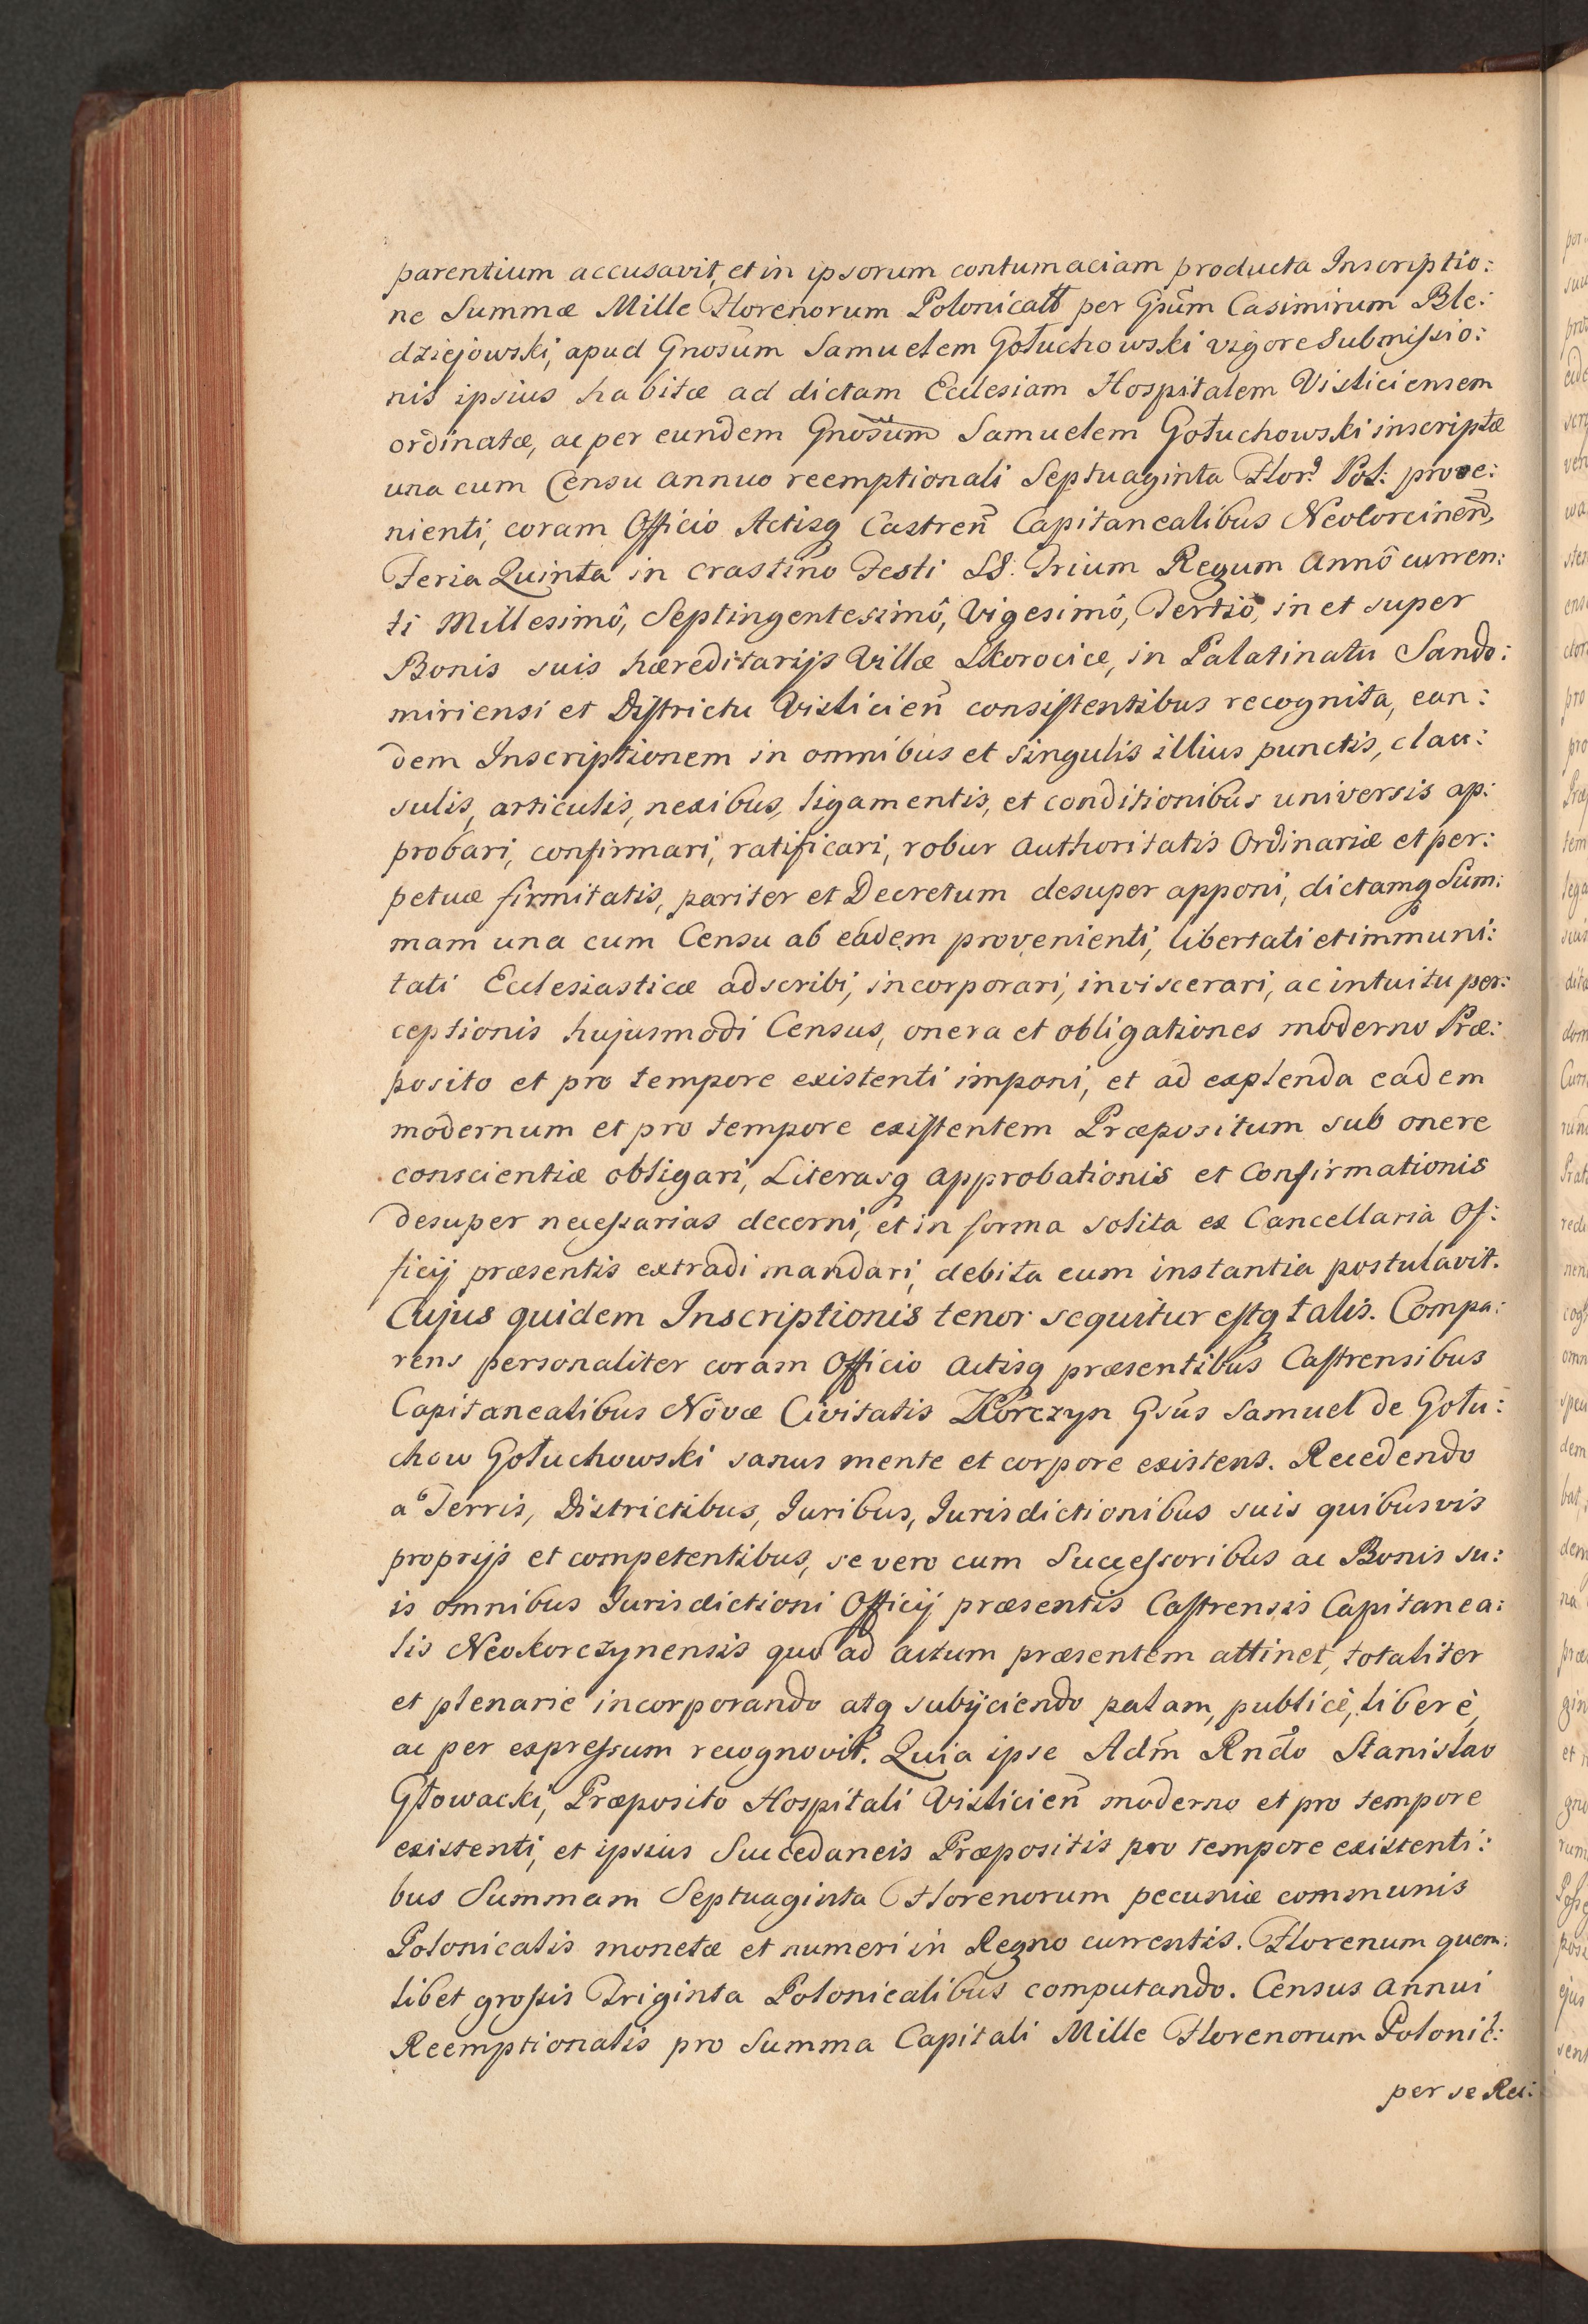 parentium accusavit, et in ipsorum contumaciam producta Inscriptio:
ne Summæ Mille Florenorum Polonicall per Gsum Casimirum Ble:
dziejowski, apud Gnosum Samuelem Gołuchowski vigore Submissio:
nis ipsius habitæ ad dictam Ecclesiam Hospitalem Visliciensem
ordinatæ, ac per eundem Gnosum Samuelem Gołuchowski inscriptæ
una cum Censu annuo reemptionali Septuaginta Flor: Pol: prove:
nienti, coram Officio Actisq Castren̄ Capitanealibus Neolorcinen̄,
Feria Quinta in crastino Festi SS. Trium Regum Annô curren:
ti Millesimô, Septingentesimô, Vigesimô, Tertiô, in et super
Bonis suis hæreditarijs Villæ Skorocice, in Palatinatu Sando:
miriensi et Districtu Vislicien̄ consistentibus recognita, ean:
dem Inscriptionem in omnibus et singulis illius punctis, clau:
sulis, articulis, nexibus, ligamentis, et conditionibus universis ap:
probari, confirmari, ratificari, robur authoritatis Ordinariæ et per:
petuæ firmitatis, pariter et Decretum desuper apponi, dictamq Sum:
mam una cum Censu ab eadem provenienti, libertati et immuni:
tati Ecclesiasticæ adscribi, incorporari, inviscerari, ac intuitu per:
ceptionis hujusmodi Census, onera et obligationes moderno Præ:
posito et pro tempore existenti imponi, et ad explenda eadem
modernum et pro tempore existentem Præpositum sub onere
conscientiæ obligari, Literasq approbationis et Confirmationis
desuper necessarias decerni, et in forma solita ex Cancellaria Of:
ficij præsentis extradi mandari, debita cum instantia postulavit.
Cujus quidem Inscriptionis tenor sequitur estq talis. Compa:
rens personaliter coram Officio Actisq præsentibus Castrensibus
Capitanealibus Novæ Civitatis Korczyn Gsus Samuel de Gołu:
chow Gołuchowski sanus mente et corpore existens. Recedendo
a Terris, Districtibus, Juribus, Jurisdictionibus suis quibusvis
proprijs et competentibus, se vero cum Successoribus ac Bonis su:
is omnibus Jurisdictioni Officij præsentis Castrensis Capitanea:
lis Neokorczynensis quo ad actum præsentem attinet, totaliter
et plenarie incorporando atq subijciendo palam, publicè, liberè,
ac per expressum recognovit. Quia ipse Adm̄ Rndo Stanislao
Głowacki, Præposito Hospitali Vislicien̄ moderno et pro tempore
existenti, et ipsius Succedaneis Præpositis pro tempore existenti:
bus Summam Septuaginta Florenorum pecuniæ communis
Polonicalis monetæ et numeri in Regno currentis. Florenum quem:
libet grossis Triginta Polonicalibus computando. Census annui
Reemptionalis pro Summa Capitali Mille Florenorum Polonic:
per se Rec: